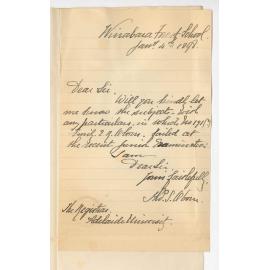 Wirrabara For. School.
Jany 4th 1898.
Dear Sir.
Will you kindly let
me know the subject - with
any particulars, in which No 191
Cyril E. G. Aborn, failed at
the recent Junior Examination
I am
Dear Sir
Yours faithfully,
The Registrar
Adelaide University.